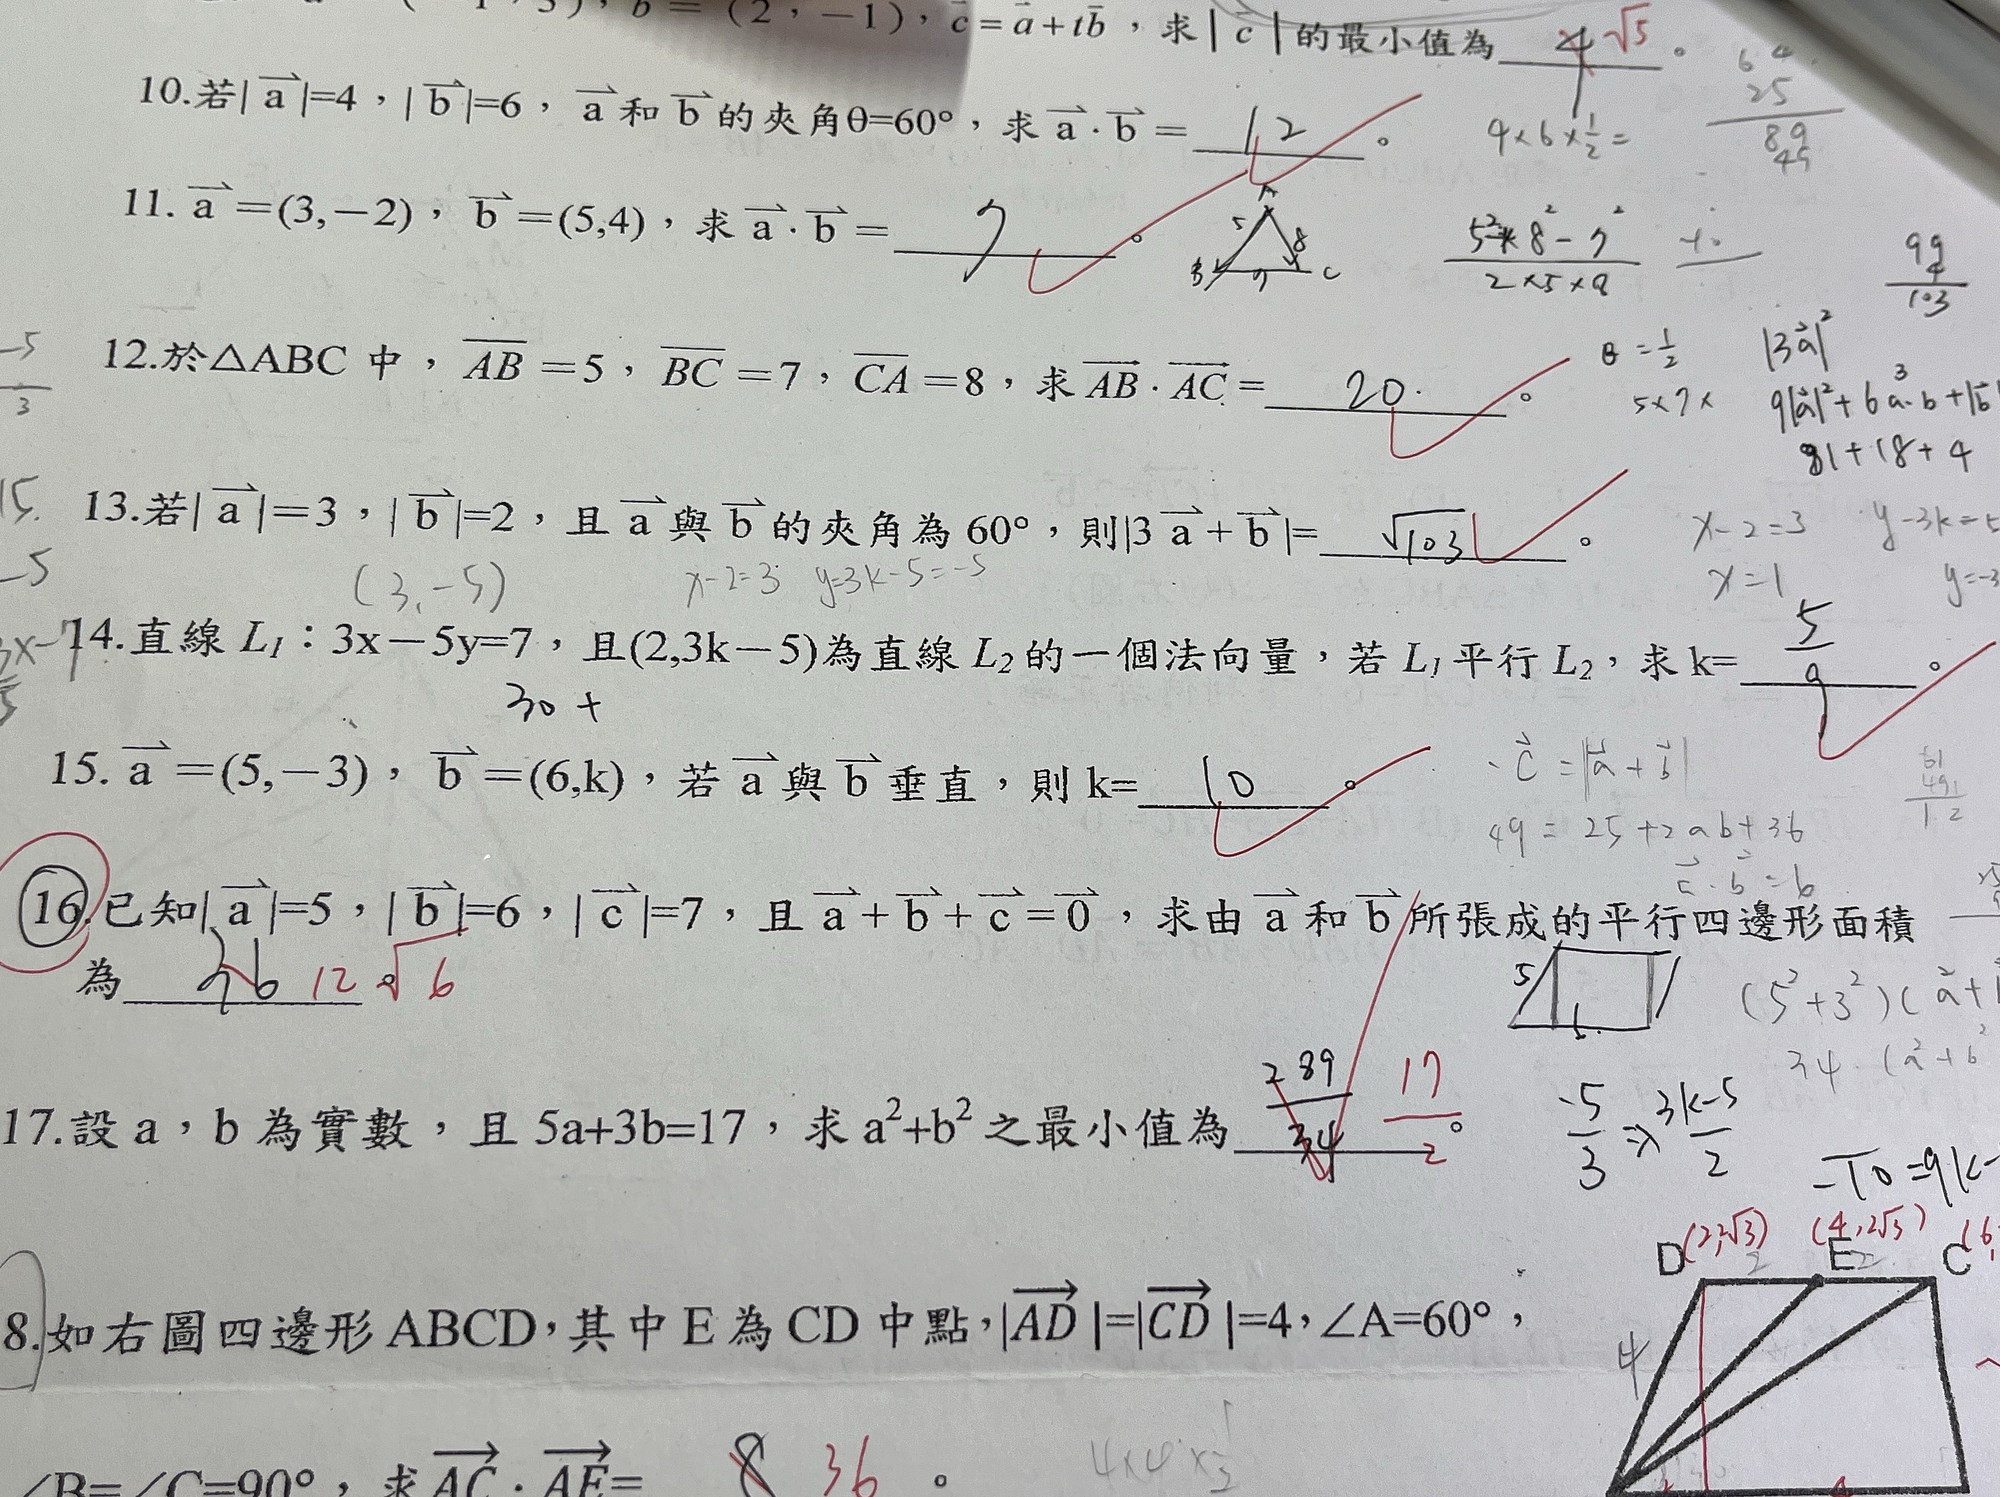 b = (2，−1)，c = a + tb，求|c|的最小值為 4 √5 。
10.若|a|=4，|b|=6，a和b的夾角θ=60°，求a·b= 12 。
4×6×1/2=
64
25
89
49
11. a=(3,−2)，b=(5,4)，求a·b= 7 。
A
5 8
B 7 C
5²+8²−7²
2×5×8
99
4
103
12.於△ABC中，AB=5，BC=7，CA=8，求AB·AC= 20 。
θ=1/2
5×7×
|3a|²
9|a|²+6a·b+|b|
3
81+18+4
13.若|a|=3，|b|=2，且a與b的夾角為60°，則|3a+b|= √103 。
(3,−5)
x−2=3 y=3k−5=−5
x−2=3
x=1
y−3k=
14.直線L1：3x−5y=7，且(2,3k−5)為直線L2的一個法向量，若L1平行L2，求k= 5/9 。
30+
15. a=(5,−3)，b=(6,k)，若a與b垂直，則k= 10 。
c=|a+b|
49=25+2ab+36
a·b=6
16.已知|a|=5，|b|=6，|c|=7，且a+b+c=0，求由a和b所張成的平行四邊形面積
為 36 12√6 。
5
6
(5²+3²)(a+
34·(a²+b²
17.設a，b為實數，且5a+3b=17，求a²+b²之最小值為 289/34 17/2 。
−5/3 ⇒ 3k−5/2
−10=9k−
D(2,2√3) E(4,2√3) C(6,
2 2
4
8.如右圖四邊形ABCD，其中E為CD中點，|AD|=|CD|=4，∠A=60°，
∠B=∠C=90°，求AC·AE= 8 36 。
4×4×1/2